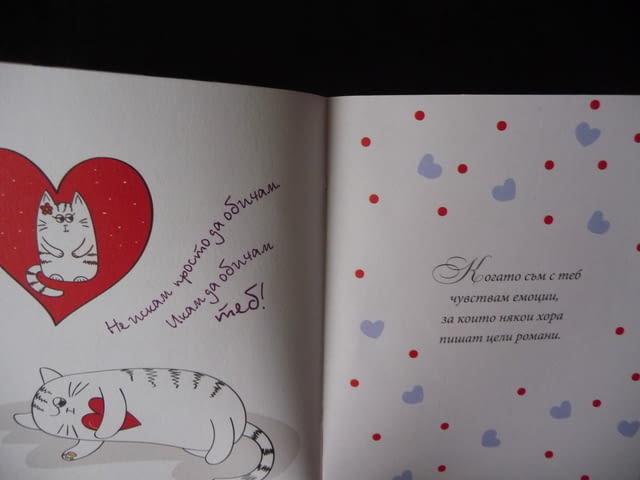 Не искам просто да обичам
Искам да обичам
теб!
Когато съм с теб
чувствам емоции,
за които някои хора
пишат цели романи.